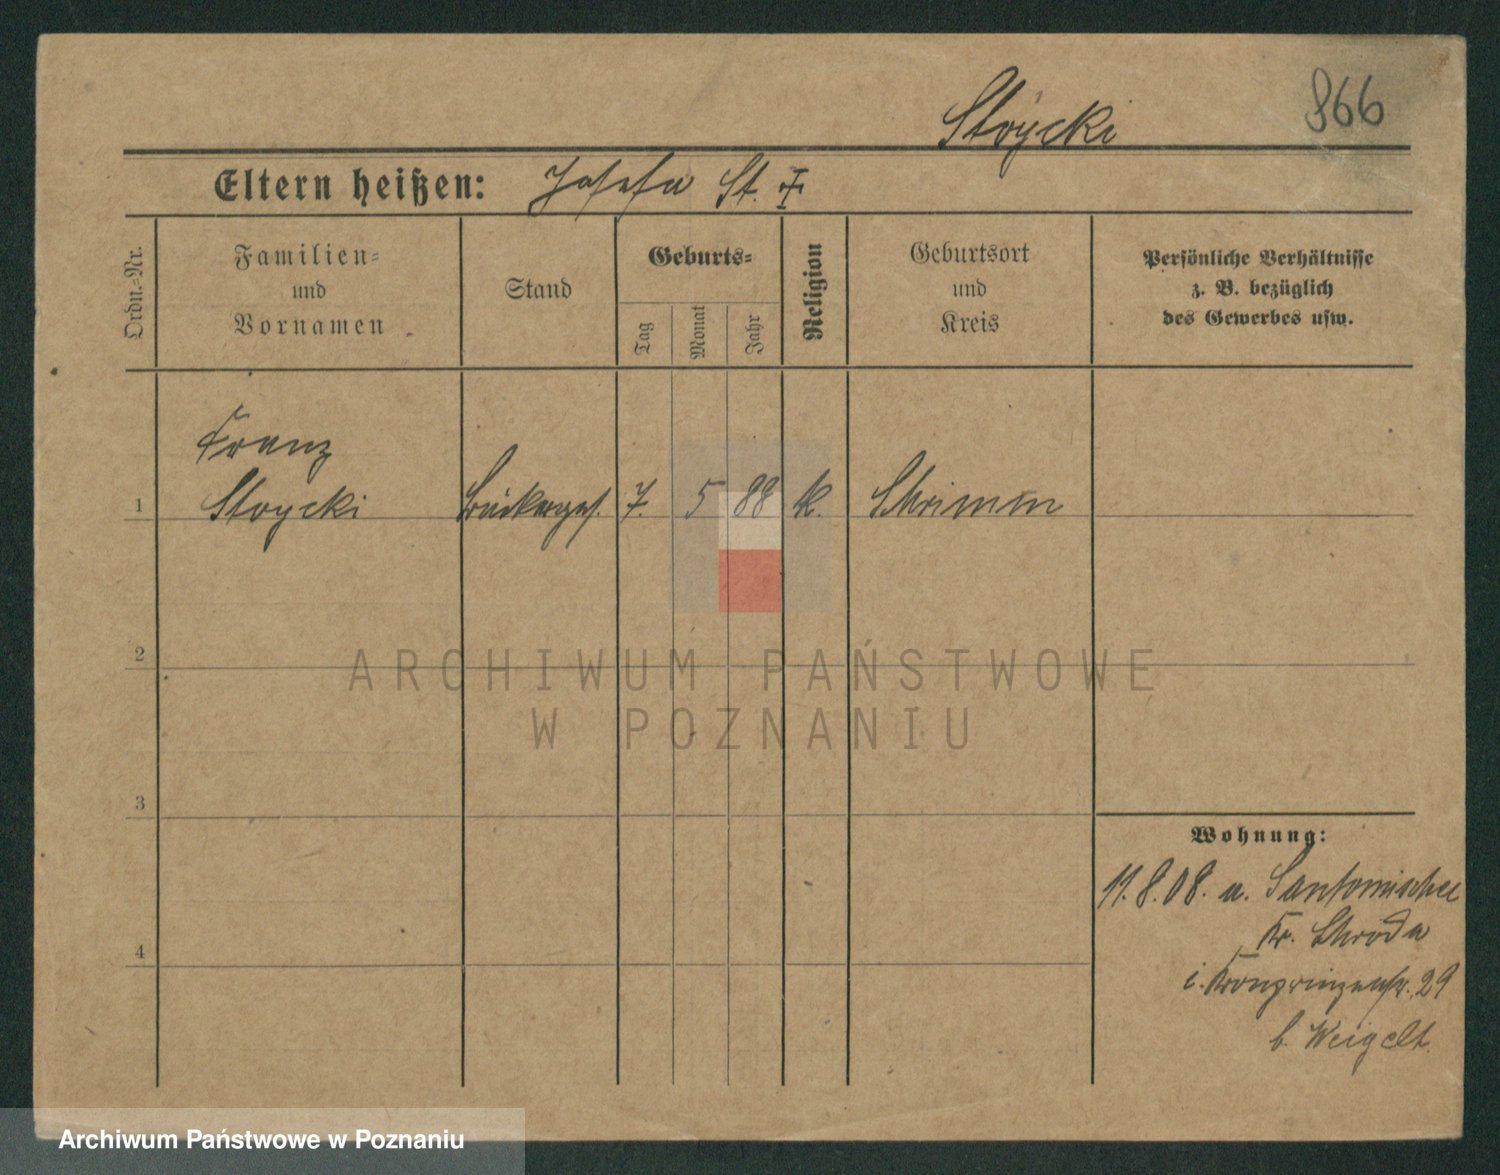 866
Stoycki
Eltern heißen: Josefa St. †
Ordn.-Nr.
Familien- und Vornamen
Stand
Geburts-
Tag
Monat
Jahr
Religion
Geburtsort und Kreis
Persönliche Verhältnisse
z. B. bezüglich
des Gewerbes usw.
Franz
1 Stoycki 7. 5 88 k. Schrimm
2
ARCHIWUM PAŃSTWOWE
W POZNANIU
3
Wohnung:
11.8.08. a. Santomischel
Kr. Schroda
4
i. Kronprinzenstr. 29
b. Weigelt
Archiwum Państwowe w Poznaniu